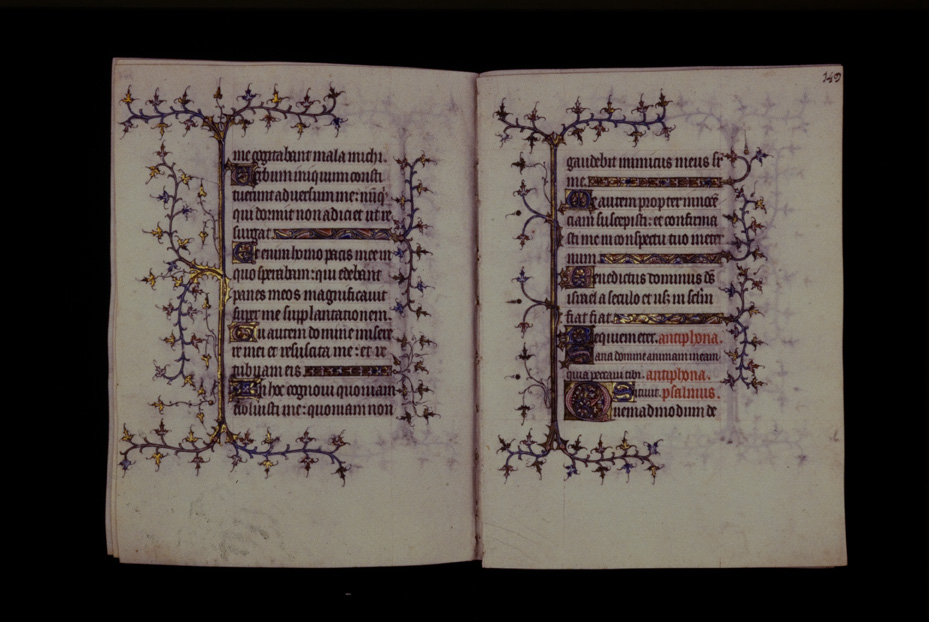 me cogitabant mala michi.
Verbum iniquum consti
tuerunt adversum me: nūq̄
qui dormit non adiciet ut re
surgat
Et enim homo pacis mee in
quo sperabam: qui edebant
panes meos magnificavit
super me supplantationem.
Tu autem domine misere
re mei et resuscita me: et re
tribuam eis
In hoc cognovi quoniam
voluisti me: quoniam non
149
gaudebit inimicus meus su
me.
Me autem propter innocē
ciam suscepisti: et confirma
sti me in conspectu tuo in eter
num
Benedictus dominus ds̄
israel a seculo et usq; in sclm̄
fiat fiat.
Requiem eter. antiphona.
Sana domine animam meam
quia peccavi tibi. antiphona.
Sitivit. psalmus.
Quemadmodum de